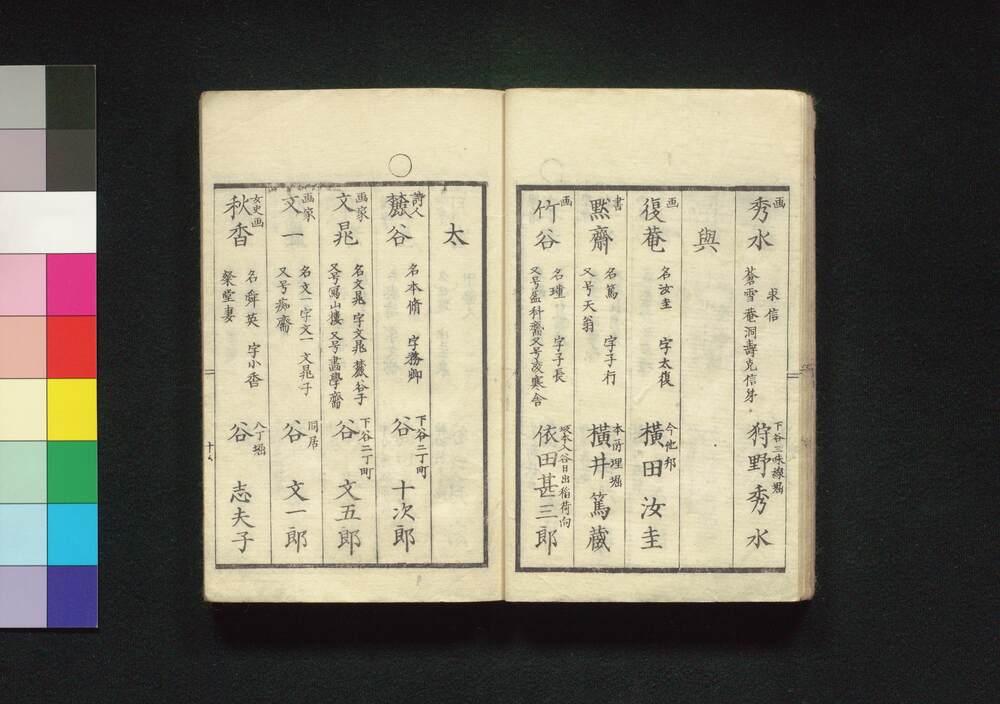 画
秀水
求信
蒼雪菴洞壽克信弟
下谷三味線堀
狩野秀水
與
画
復菴
名汝圭 字太復
今他邦
横田汝圭
書
黙齋
名篤 字子行
又号天翁
本所埋堀
横井篤蔵
画
竹谷
名瑾 字子長
又号盈科齋又号凌寒舎
坂本入谷日出稲荷向
依田甚三郎
太
詩人
麓谷
名本脩 字務卿
下谷二丁町
谷十次郎
画家
文晁
名文晁 字文晁 麓谷子
又号寫山樓又号畫學齋
下谷二丁町
谷文五郎
画家
文一
名文一 字文一 文晁子
又号痴齋
同居
谷文一郎
女史画
秋香
名舜英 字小香
粲堂妻
八丁堀
谷志夫子